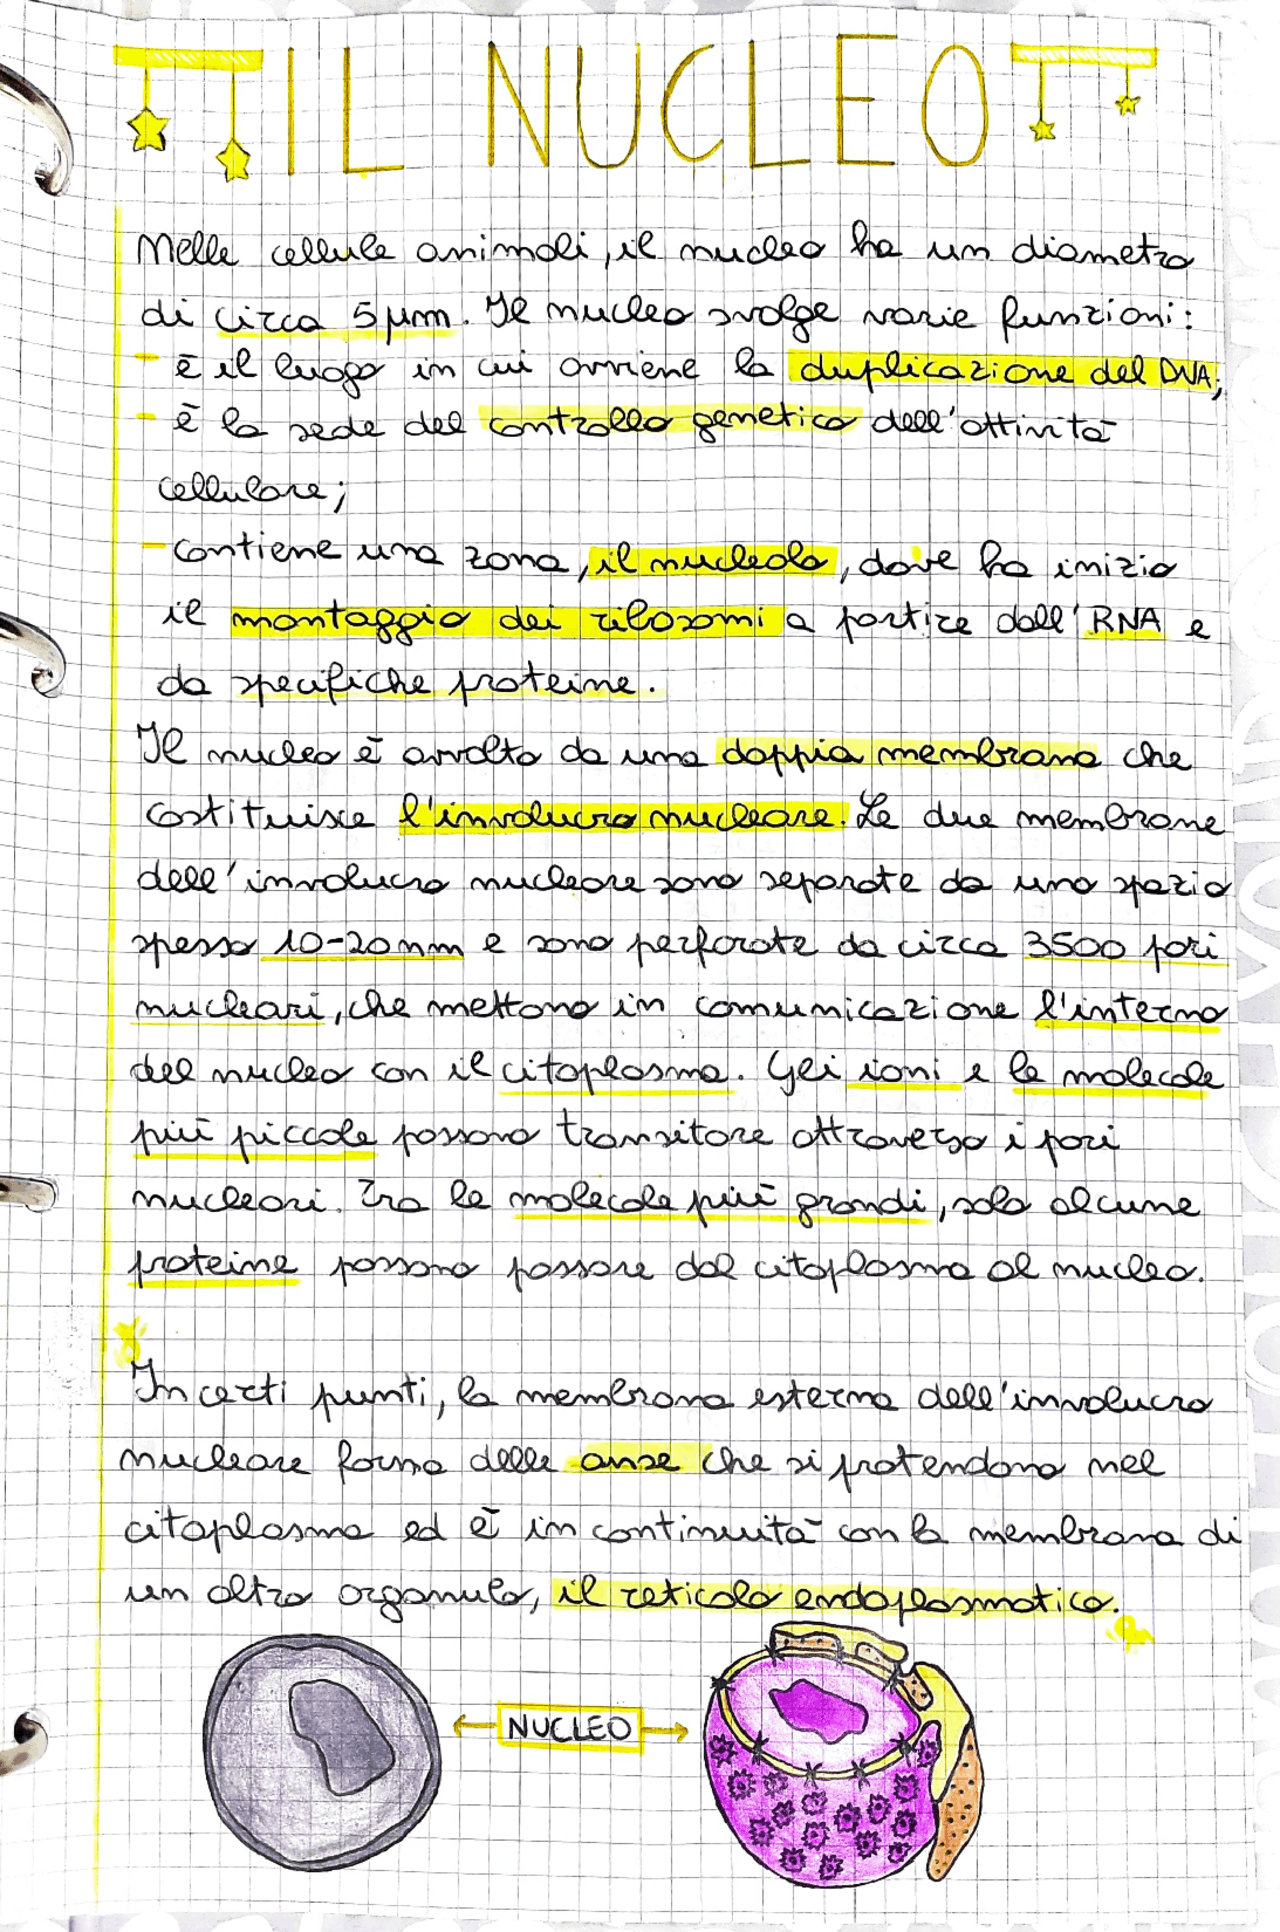 IL NUCLEO
Nelle cellule animali, il nucleo ha un diametro
di circa 5 μm. Il nucleo svolge varie funzioni:
- è il luogo in cui avviene la duplicazione del DNA;
- è la sede del controllo genetico dell'attività
cellulare;
- contiene una zona, il nucleolo, dove ha inizio
il montaggio dei ribosomi a partire dall'RNA e
da specifiche proteine.
Il nucleo è avvolto da una doppia membrana che
costituisce l'involucro nucleare. Le due membrane
dell'involucro nucleare sono separate da uno spazio
spesso 10-20 nm e sono perforate da circa 3500 pori
nucleari, che mettono in comunicazione l'interno
del nucleo con il citoplasma. Gli ioni e le molecole
più piccole possono transitare attraverso i pori
nucleari. Tra le molecole più grandi, solo alcune
proteine possono passare dal citoplasma al nucleo.
In certi punti, la membrana esterna dell'involucro
nucleare forma delle anse che si protendono nel
citoplasma ed è in continuità con la membrana di
un altro organulo, il reticolo endoplasmatico.
NUCLEO